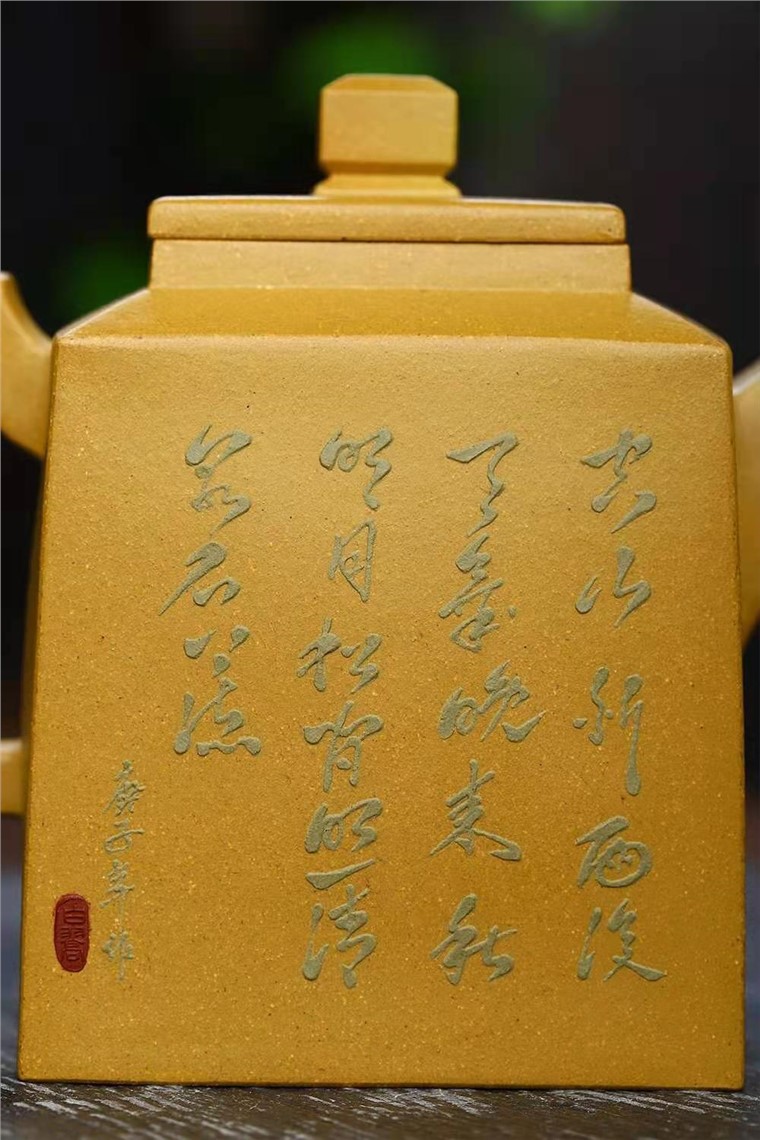 空山新雨後
天氣晚来秋
明月松間照清
泉石上流
庚子年作